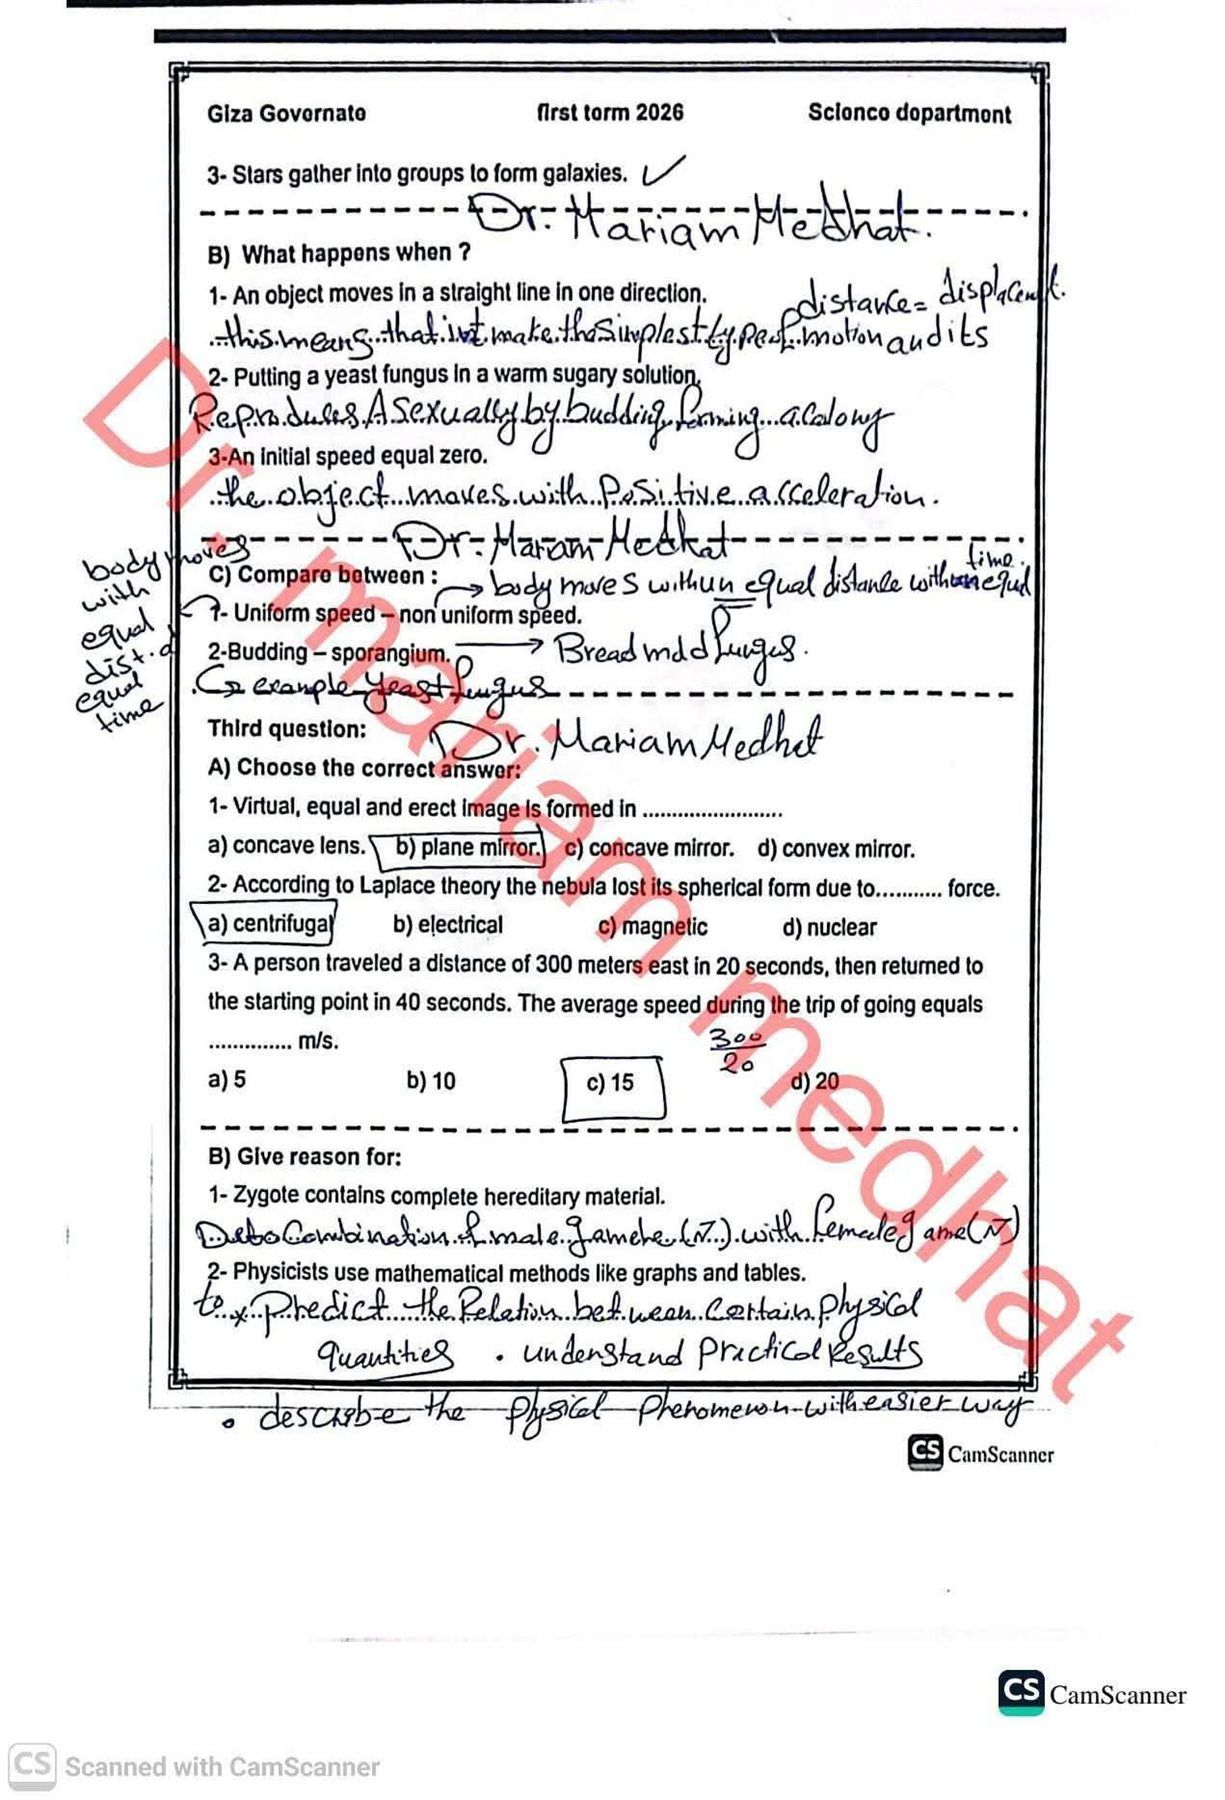 Giza Governate first term 2026 Science department
3- Stars gather into groups to form galaxies. ✓
Dr. Mariam Medhat.
B) What happens when ?
1- An object moves in a straight line in one direction. distance = displacement.
this means that it make the simplest type of motion and its
2- Putting a yeast fungus in a warm sugary solution.
Reproduces Asexually by budding forming a colony
3-An initial speed equal zero.
the object moves with Positive acceleration.
Dr. Mariam Medhat
time.
C) Compare between : → body moves with unequal distance with unequal
body moves
with
equal
dist. a
equal
time
1- Uniform speed – non uniform speed.
2-Budding – sporangium. → Bread mold fungus.
example Yeast fungus
Third question: Dr. Mariam Medhat
A) Choose the correct answer:
1- Virtual, equal and erect image is formed in ........................
a) concave lens. b) plane mirror. c) concave mirror. d) convex mirror.
2- According to Laplace theory the nebula lost its spherical form due to........... force.
a) centrifugal b) electrical c) magnetic d) nuclear
3- A person traveled a distance of 300 meters east in 20 seconds, then returned to
the starting point in 40 seconds. The average speed during the trip of going equals
.............. m/s. 300
20
a) 5 b) 10 c) 15 d) 20
B) Give reason for:
1- Zygote contains complete hereditary material.
Combination of male gamete (N) with female game (N)
2- Physicists use mathematical methods like graphs and tables.
to Predict the Relation between Certain Physical
quantities • understand Practical Results
• describe the physical phenomenon with easier way
CS CamScanner
Dr. mariam medhat
CS CamScanner
CS Scanned with CamScanner